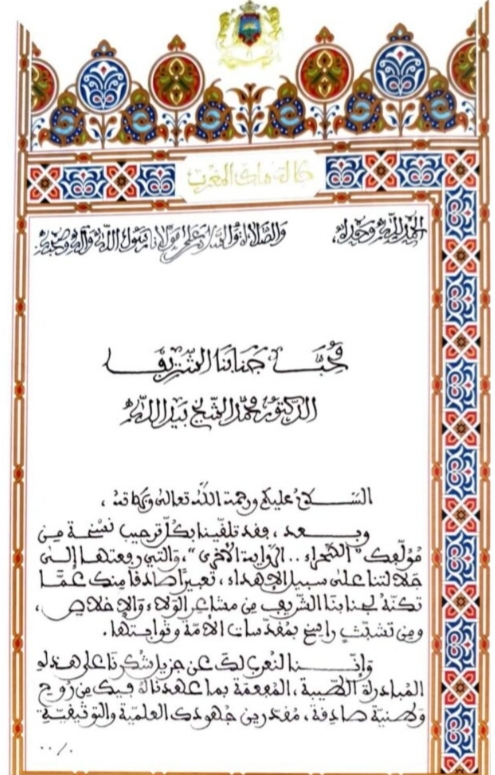 جلالة ملك المغرب
الحمد لله وحده، والصلاة والسلام على مولانا رسول الله وآله وصحبه.
محب جنابنا الشريف
الدكتور محمد الشيخ بيد الله
السلام عليكم ورحمة الله تعالى وبركاته،
وبعد، فقد تلقينا بكل ترحيب نسخة من
مؤلفك "الصحراء.. الرواية الأخرى"، والتي رفعتها إلى
جلالتنا على سبيل الإهداء، تعبيرا صادقا منك عما
تكنه لجنابنا الشريف من مشاعر الولاء والإخلاص،
ومن تشبث راسخ بمقدسات الأمة وثوابتها.
وإننا لنعرب لك عن جزيل شكرنا على هذه
المبادرة الطيبة، المفعمة بما عهدناه فيك من روح
وطنية صادقة، مقدرين جهودك العلمية والتوثيقية
../.